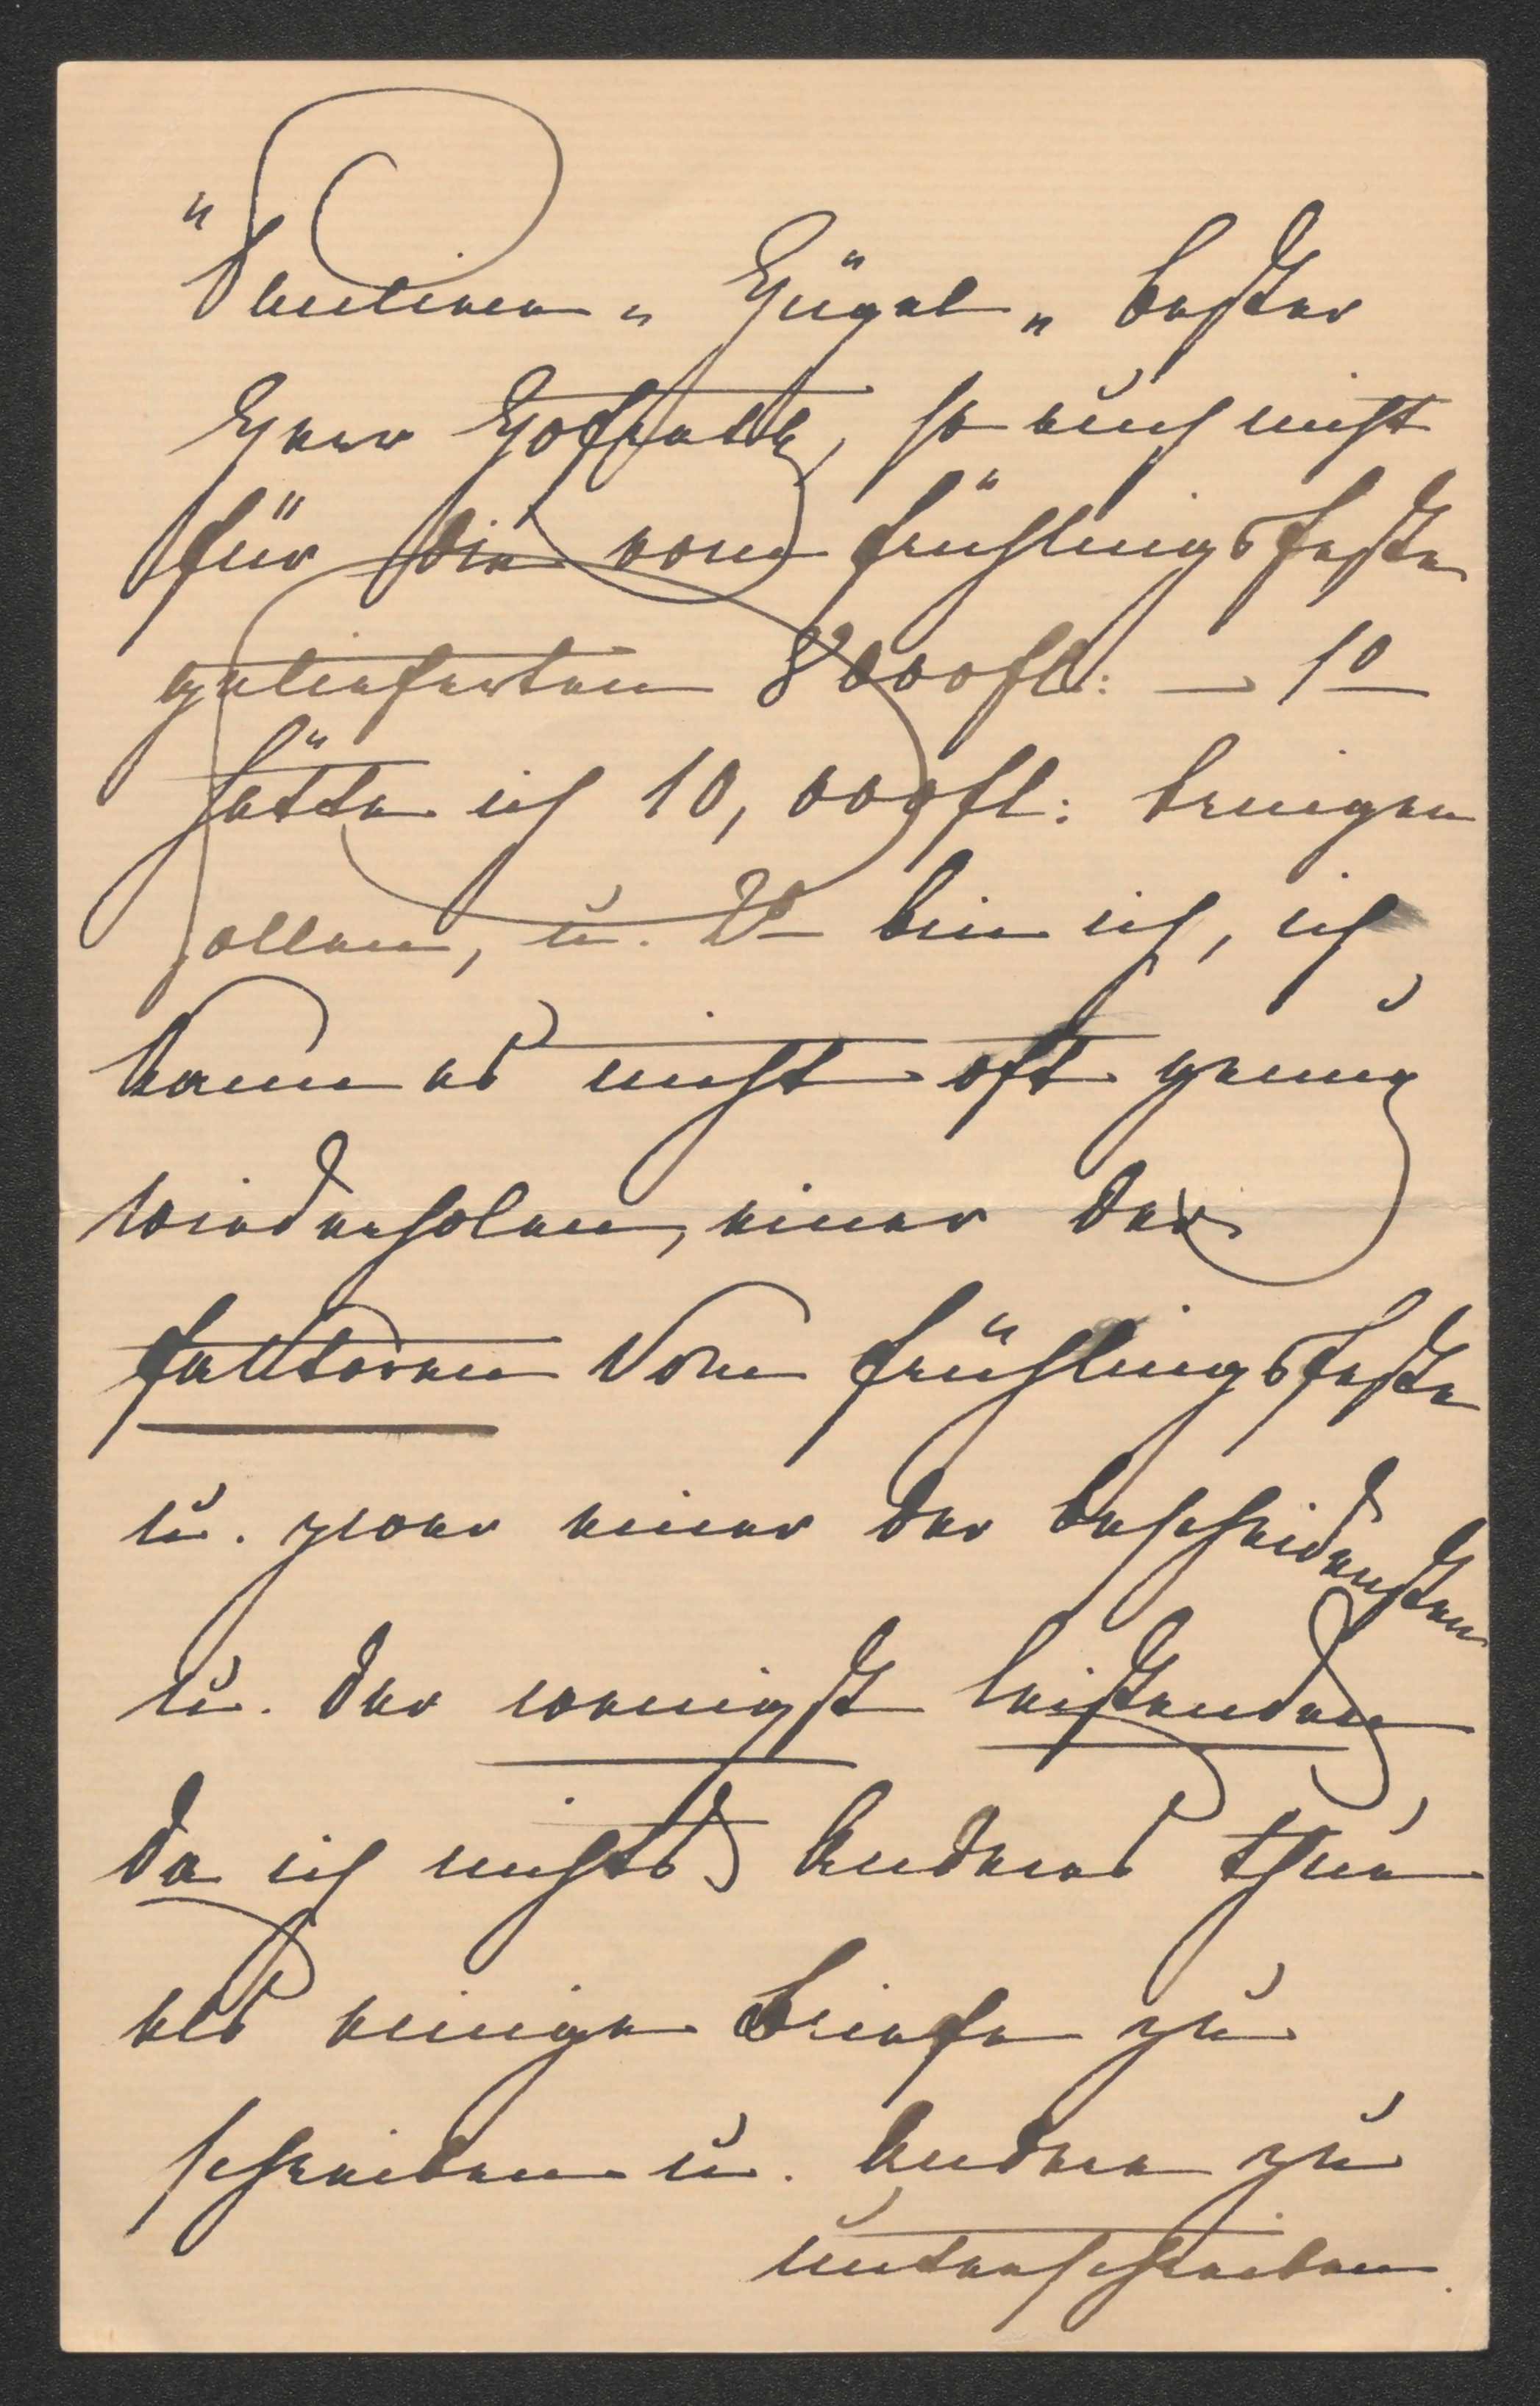 "Pauline" „Hügel„ bester
Herr Hofrath, so auch nicht
für die vom Frühlingsfeste
gelieferten 8000 fl: — 10
hätte ich 10,000 fl: bringen
sollen, u. da bin ich, ich
kann es nicht oft genug
wiederholen, einer der
Faktoren vom Frühlingsfeste
u. zwar einer der bescheidensten
u. der wenigst leistenden
da ich nichts Anderes thue
als einige Briefe zu
schreiben u. Andere zu
unterschreiben.